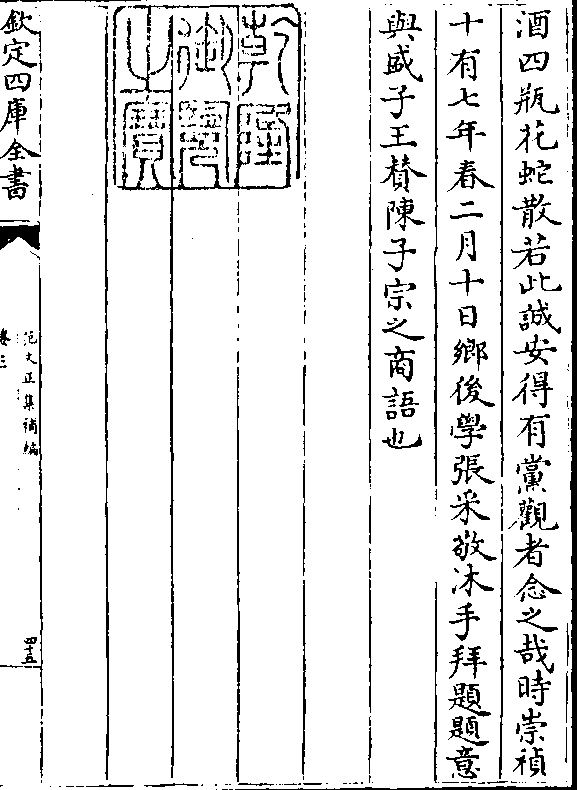 酒四瓶花蛇散若此誠安得有黨觀者念之哉時崇禎
十有七年春二月十日鄉後學張采敬沐手拜題題意
與盛子王賛陳子宗之商語也
乾隆
御覽
之寶
欽定四庫全書
范文正集補編
卷三
四十五